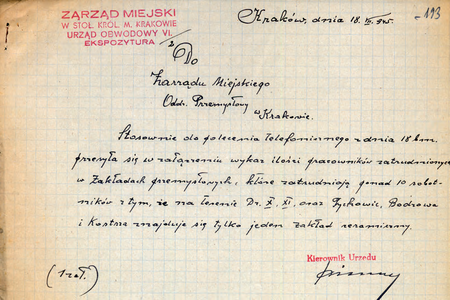 ZARZĄD MIEJSKI
W STOŁ. KRÓL. M. KRAKOWIE
URZĄD OBWODOWY VI.
EKSPOZYTURA
Kraków, dnia 18.
193
Do
Zarządu Miejskiego
Oddz. Przemysłowy
w Krakowie.
Stosownie do polecenia telefonicznego z dnia 18 bm.
przesyła się w załączeniu wykaz ilości pracowników zatrudnionych
w zakładach przemysłowych, które zatrudniają ponad 10 robot-
ników z tym, że na terenie Dz. X, XI, oraz Pychowic, Bodzowa
i Kostrza znajduje się tylko jeden zakład ceramiczny.
Kierownik Urzędu
(1 zał.)